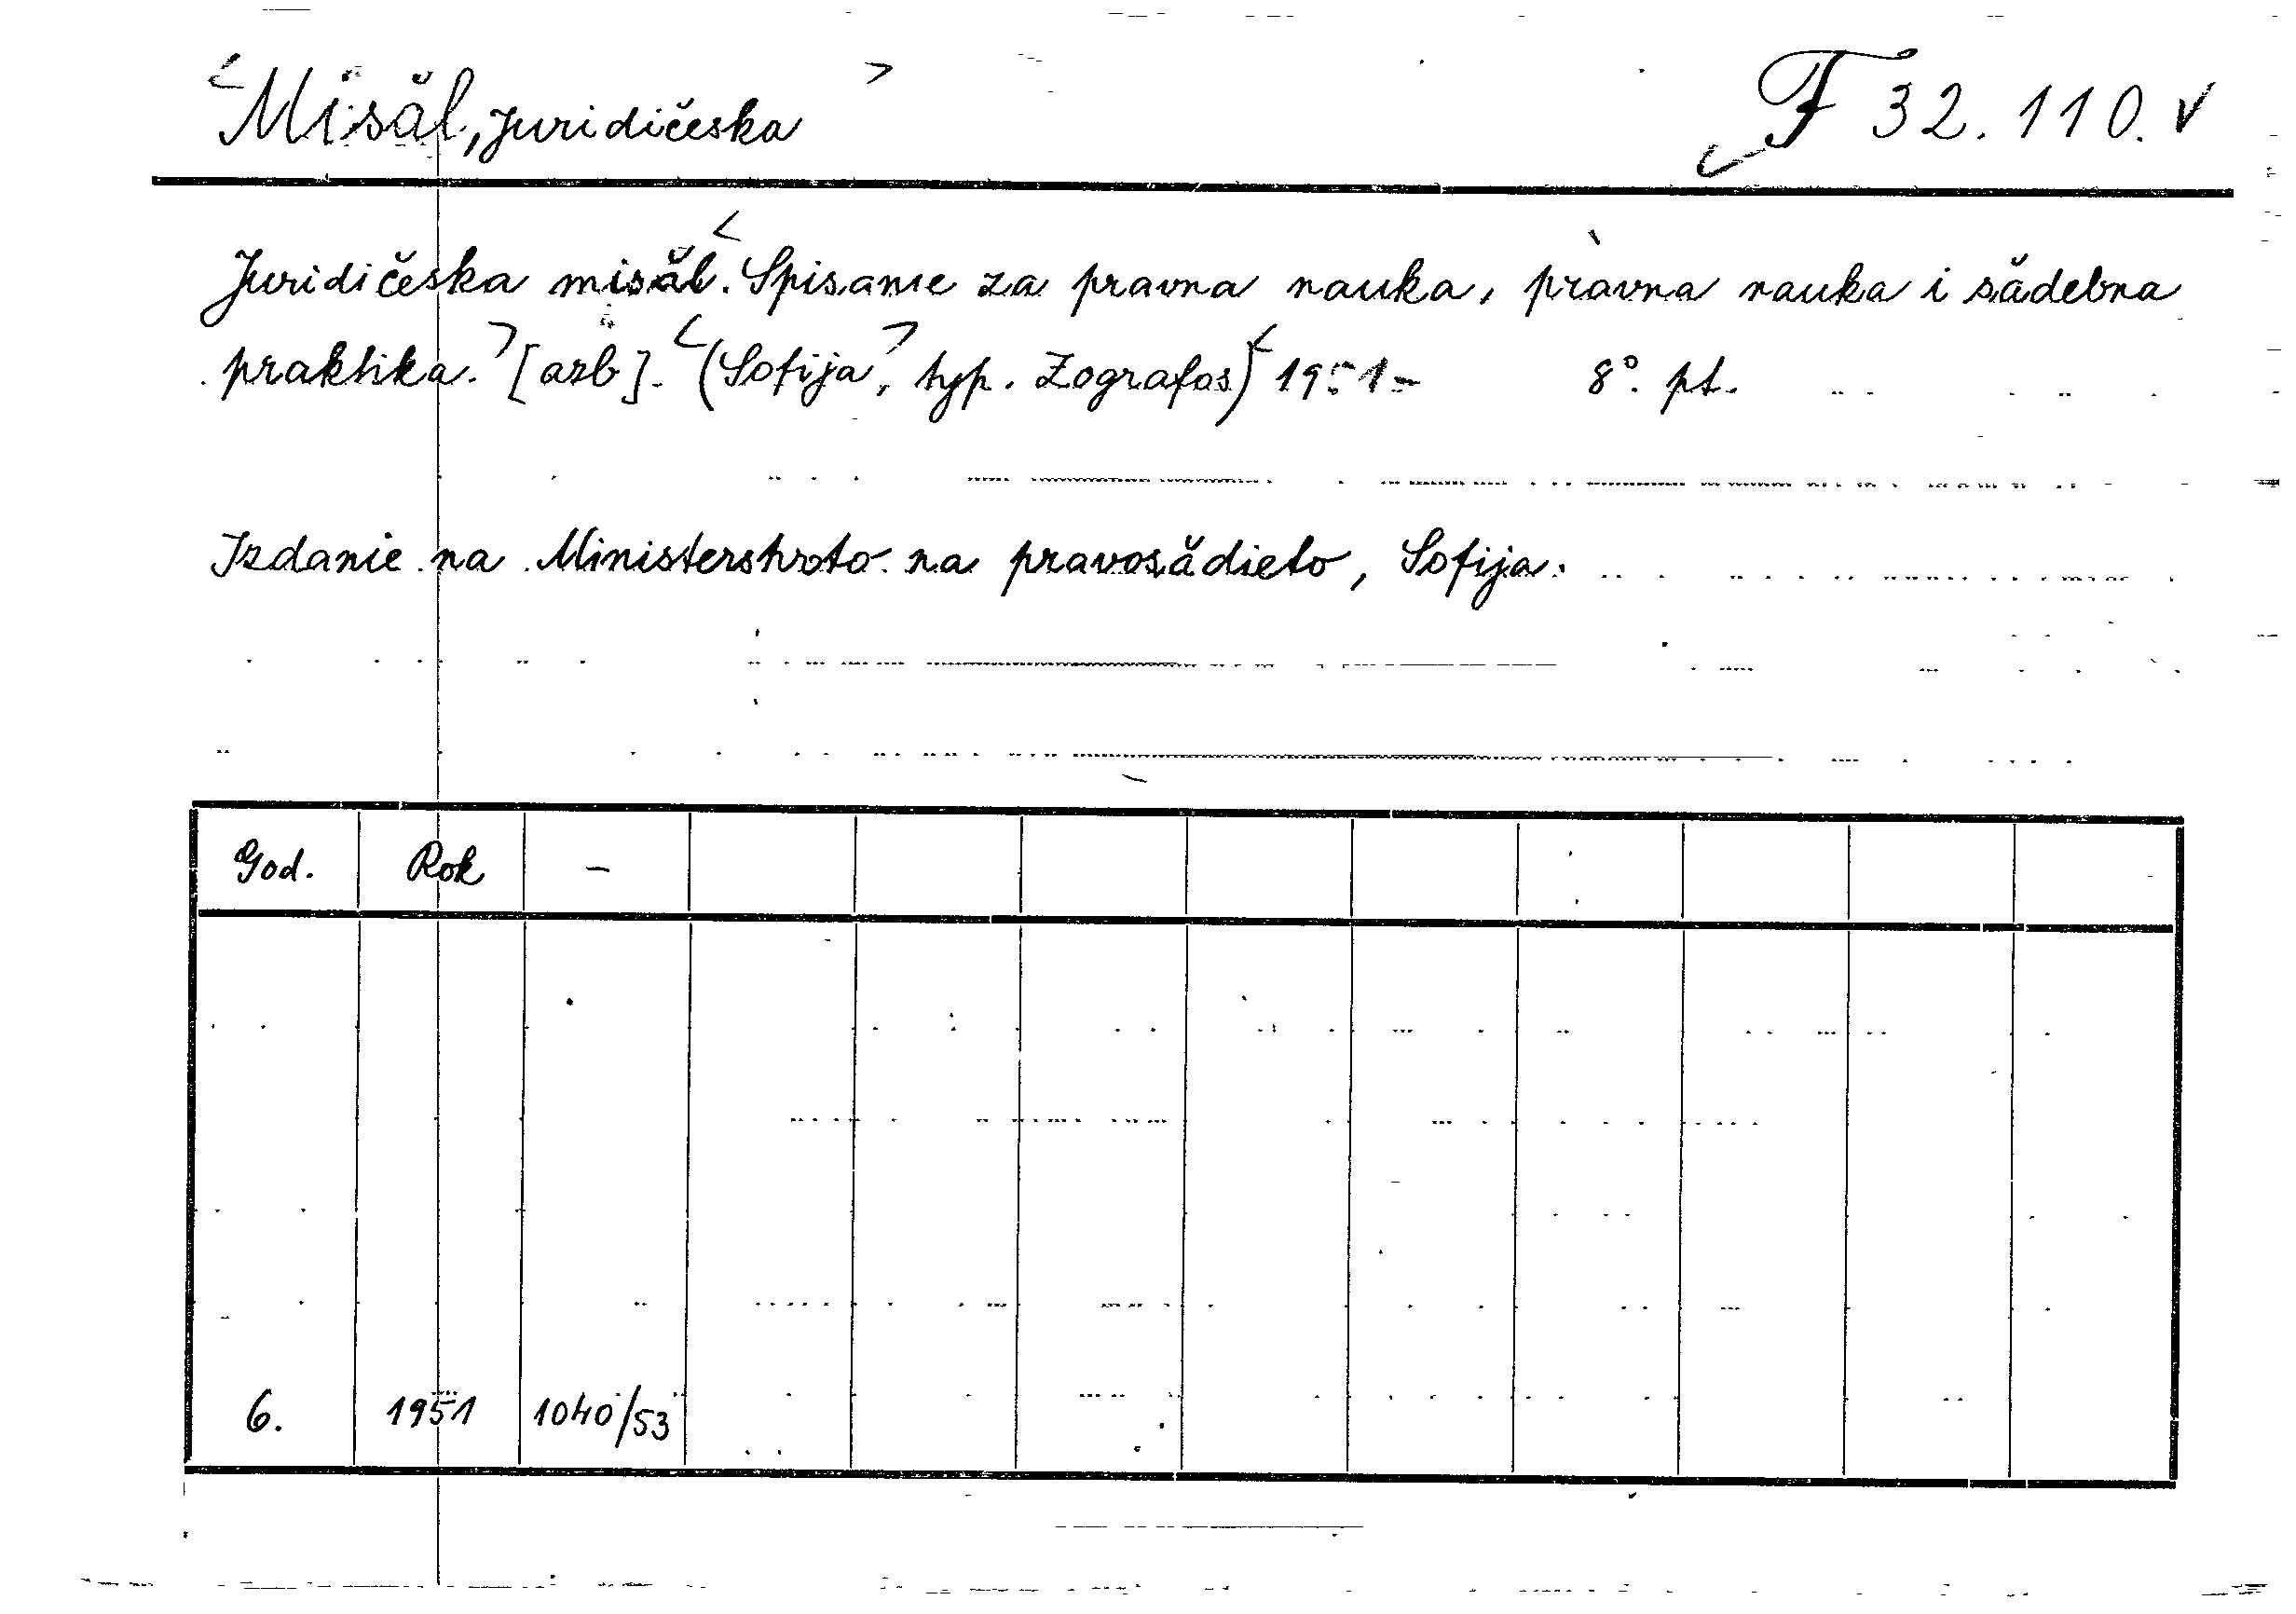 Misăl, Juridičeska F 32.110.
Juridičeska misăl. Spisanie za pravna nauka, pravna nauka i sădebna
praktika. [azb]. (Sofija, typ. Zografos) 1951- 8°. pt.
Izdanie na Ministerstvoto na pravosădieto, Sofija.
God. Rok -
6. 1951 1040/53